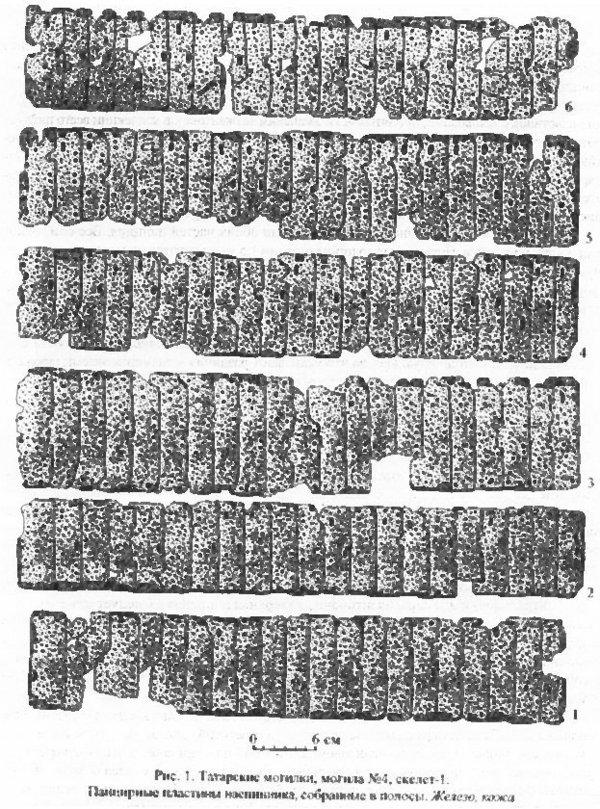 6
5
4
3
2
1
0 6 см
Рис. 1. Татарские могилки, могила №4, скелет-1.
Панцирные пластины наспинника, собранные в полосы. Железо, кожа